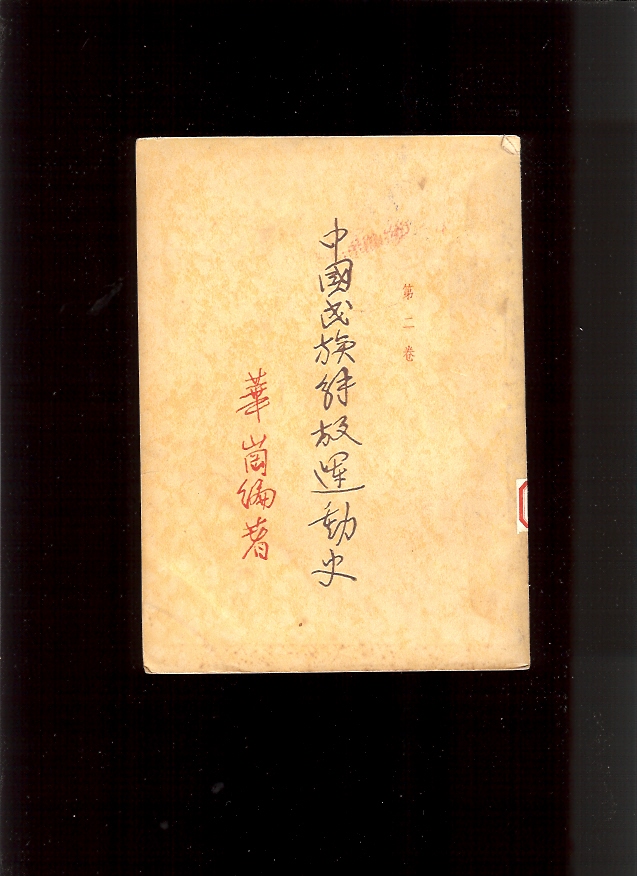 第二卷
中國民族解放運動史
華崗編著